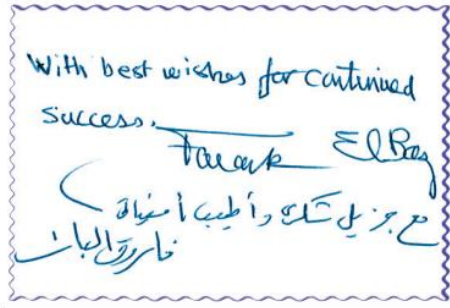 With best wishes for continued
success.
Farouk El Baz
مع جزيل شكري وأطيب أمنياتي
فاروق الباز